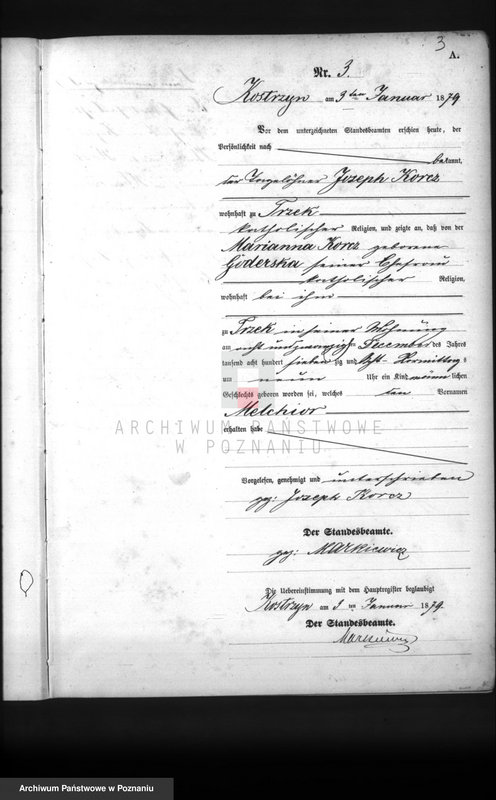 3
A.
Nr. 3.
Kostrzyn am 3ten Januar 1879
Vor dem unterzeichneten Standesbeamten erschien heute, der
Persönlichkeit nach
bekannt,
der Tagelöhner Jozeph Korcz
wohnhaft zu Trzek
katholischer Religion, und zeigte an, daß von der
Marianna Korcz geborene
Goderska seiner Ehefrau
katholischer Religion,
wohnhaft bei ihm
zu Trzek in seiner Wohnung
am acht und zwanzigsten December des Jahres
tausend acht hundert sieben zig und acht Vormittags
um neun Uhr ein Kind männlichen
Geschlechts geboren worden sei, welches den Vornamen
Melchior
erhalten habe
Vorgelesen, genehmigt und unterschrieben
gez: Jozeph Korcz
Der Standesbeamte.
gez: Markiewicz
Die Uebereinstimmung mit dem Hauptregister beglaubigt
Kostrzyn am 3ten Januar 1879.
Der Standesbeamte.
Markiewicz
ARCHIWUM PAŃSTWOWE
W POZNANIU
Archiwum Państwowe w Poznaniu